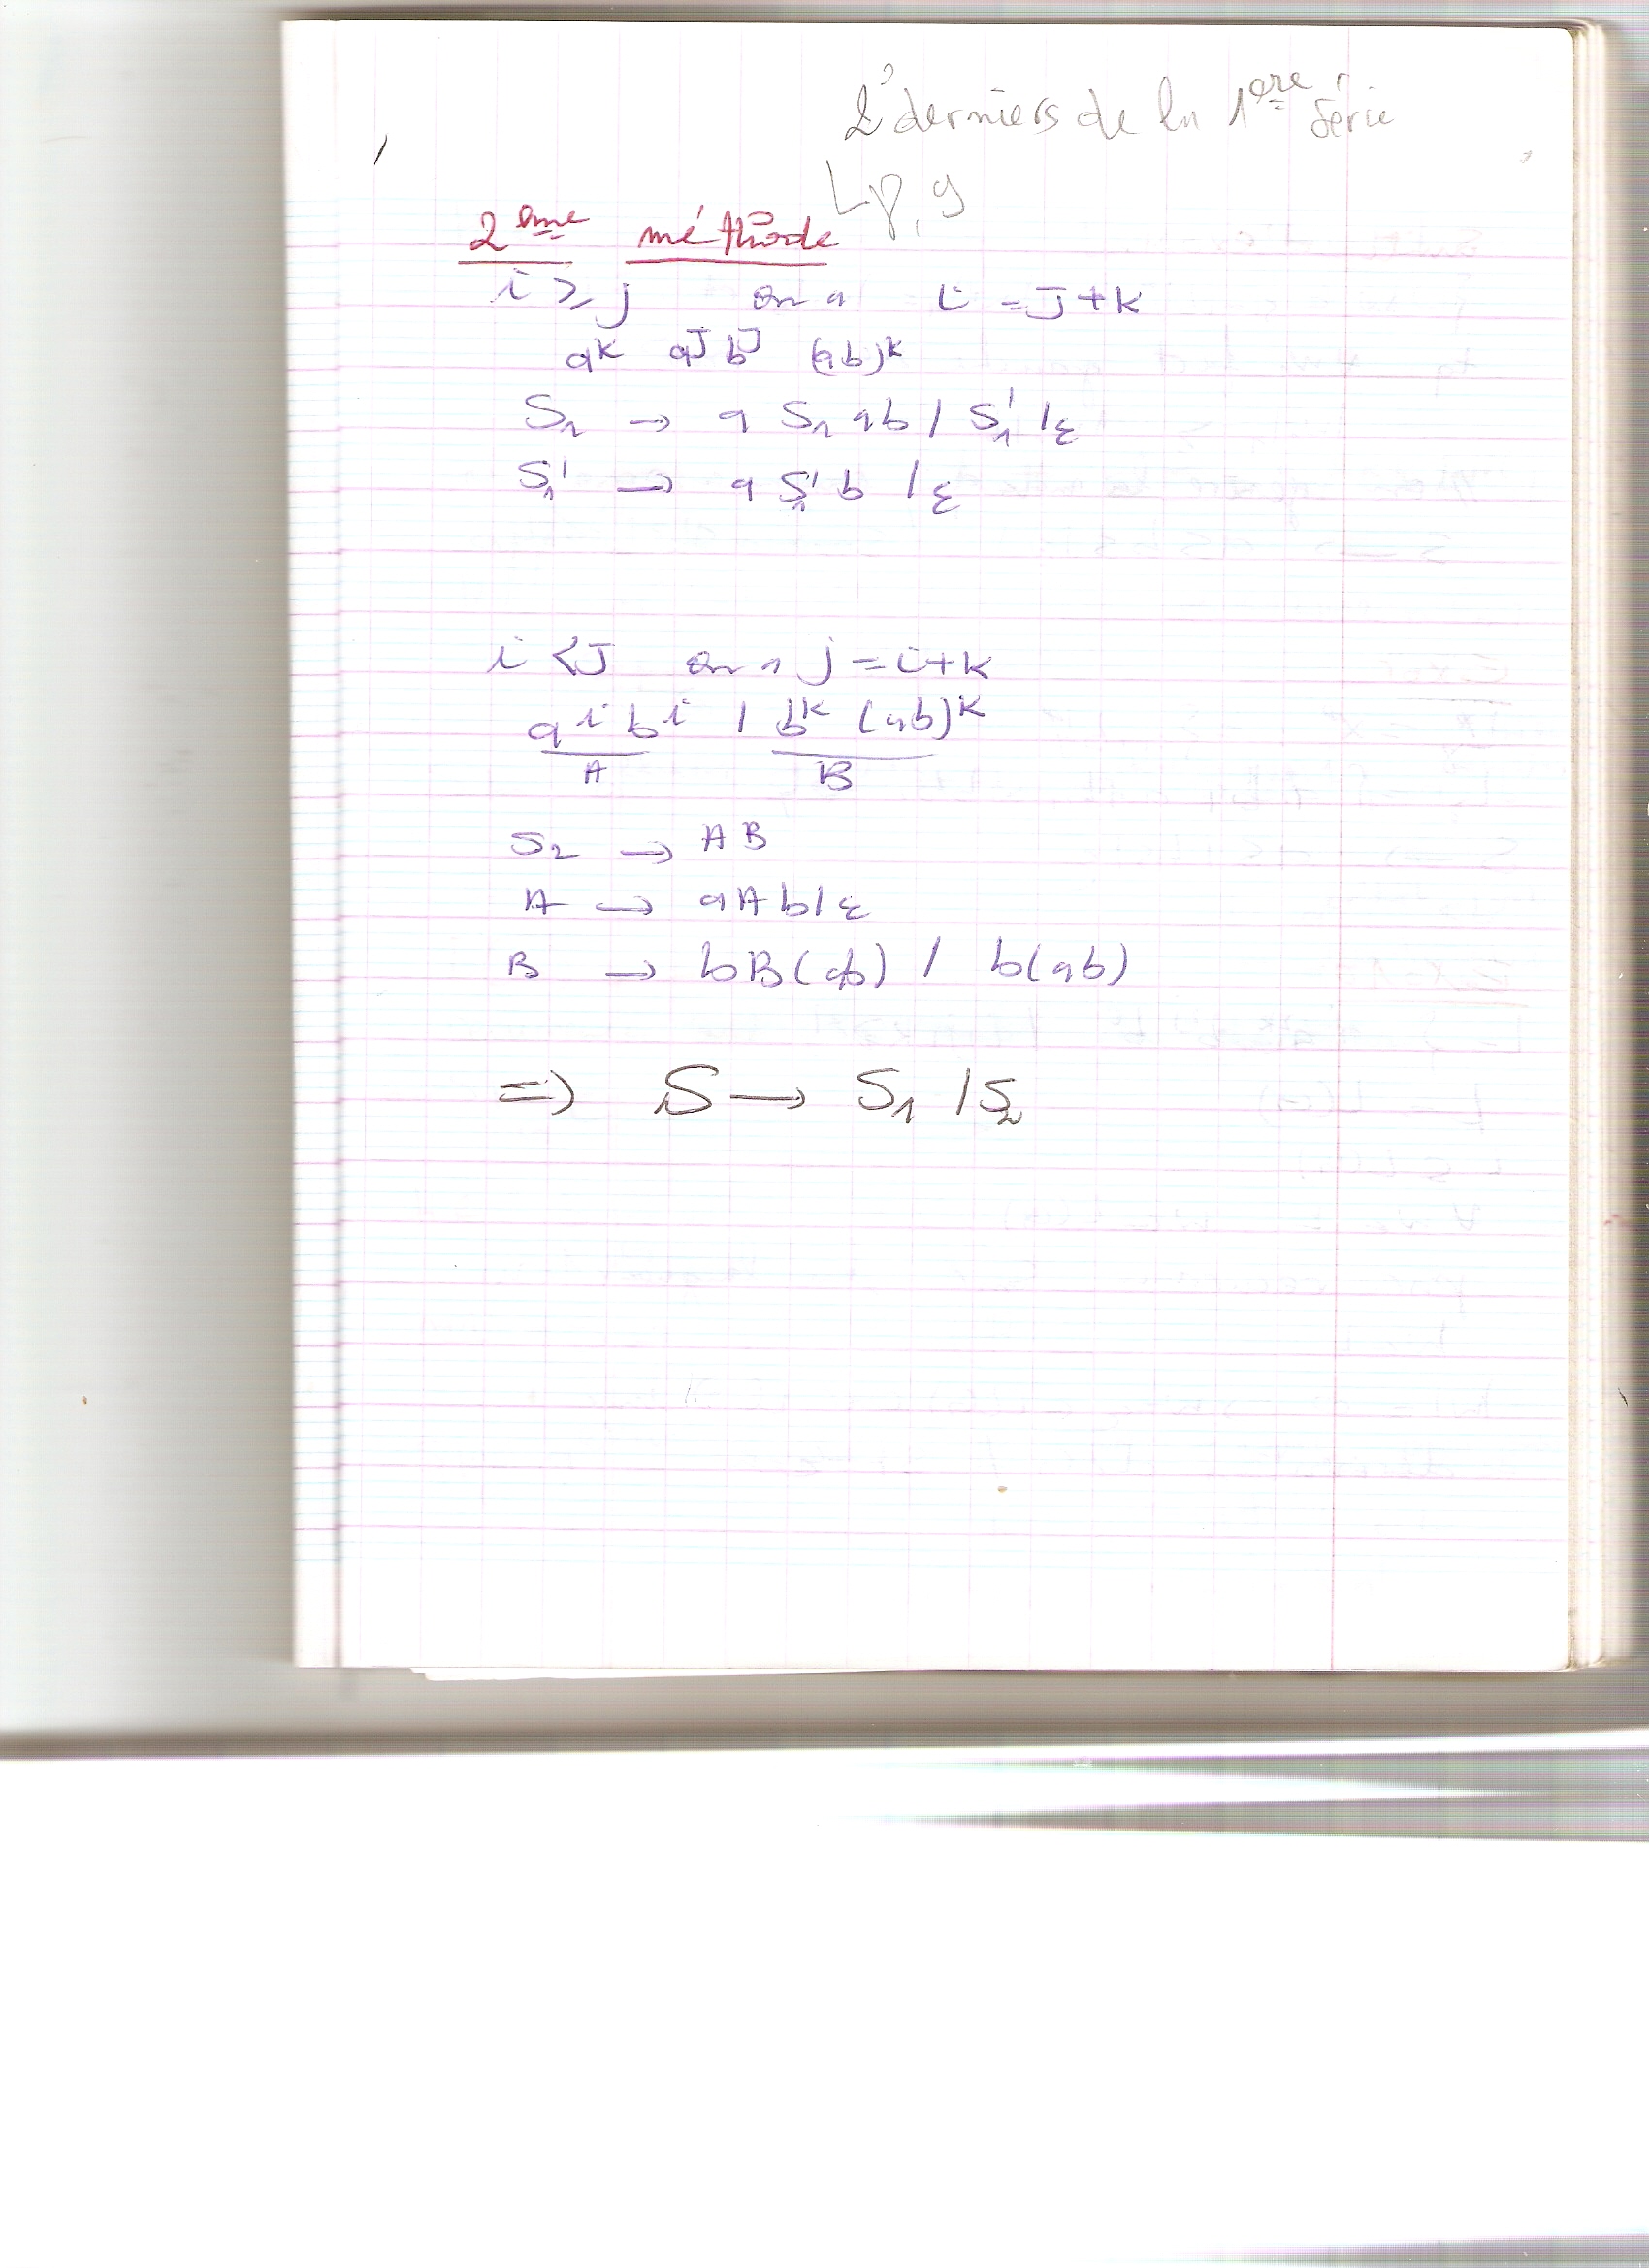 2 derniers de la 1ere série
2ème méthode
i ≥ j on a i = J + k
a^k a^J b^J (ab)^k
S₁ → a S₁ ab / S₁' / ε
S₁' → a S₁' b / ε
i < J on a j = i + k
a^i b^i / b^k (ab)^k
A B
S₂ → A B
A → a A b / ε
B → b B (ab) / b(ab)
=> S → S₁ / S₂